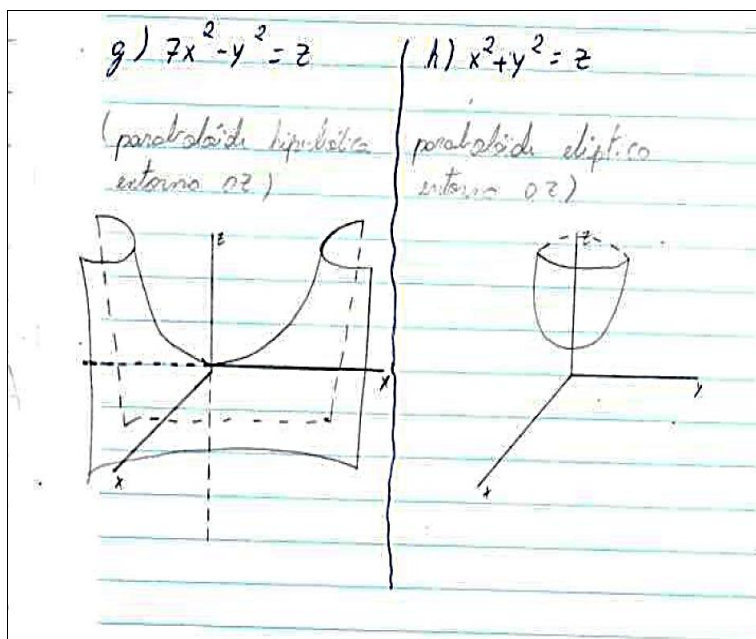 g) 7x² - y² = z
(parabolóide hiperbólica
entorno OZ)
z
x
x
h) x² + y² = z
parabolóide elíptico
entorno OZ)
z
y
x